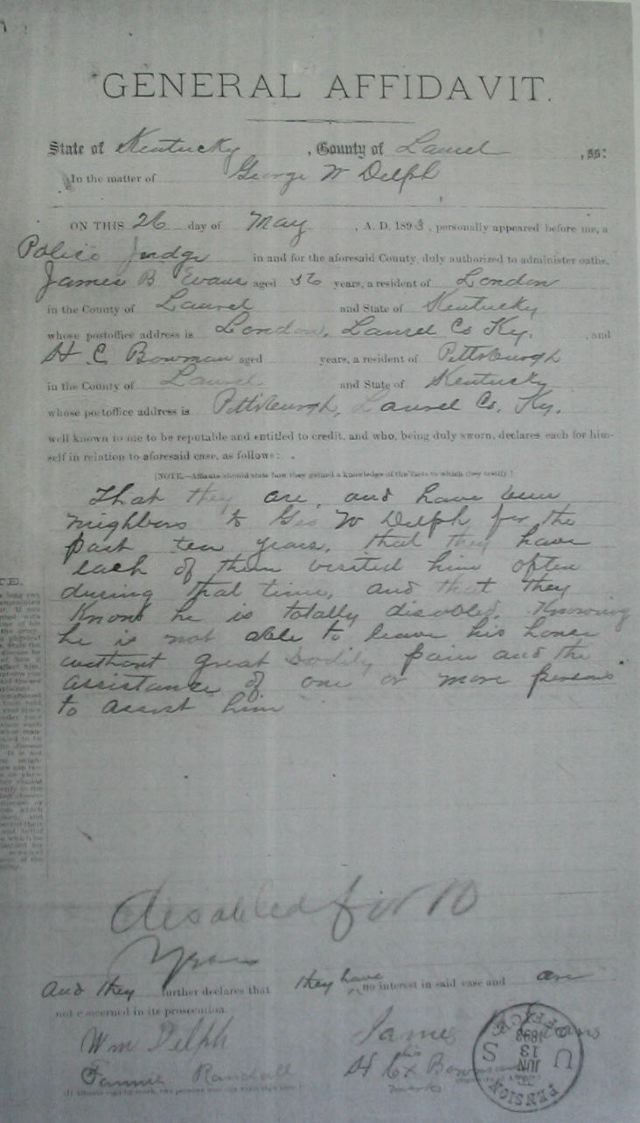 GENERAL AFFIDAVIT.
State of Kentucky, County of Laurel, ss:
In the matter of George W Delph
ON THIS 26 day of May, A. D. 1893, personally appeared before me, a
Police Judge in and for the aforesaid County, duly authorized to administer oaths,
James B Evans aged 36 years, a resident of London
in the County of Laurel and State of Kentucky
whose postoffice address is London, Laurel Co Ky. , and
H C Bowman aged years, a resident of Pittsburgh
in the County of Laurel and State of Kentucky
whose postoffice address is Pittsburgh, Laurel Co. Ky.
well known to me to be reputable and entitled to credit, and who, being duly sworn, declares each for him-
self in relation to aforesaid case, as follows:
[NOTE.—Affiants should state how they gained a knowledge of the facts to which they testify.]
That they are, and have been
neighbors to Geo W Delph for the
past ten years, that they have
each of them visited him often
during that time, and that they
Know he is totally disabled. Knowing
he is not able to leave his house
without great bodily pain and the
assistance of one or more persons
to assist him
disabled for 10
Years
And they further declares that they have no interest in said case and are
not concerned in its prosecution.
Wm Delph James Evans
Fannie Randall H C his x mark Bowman
U S PENSION OFFICE
JUN 13 1893